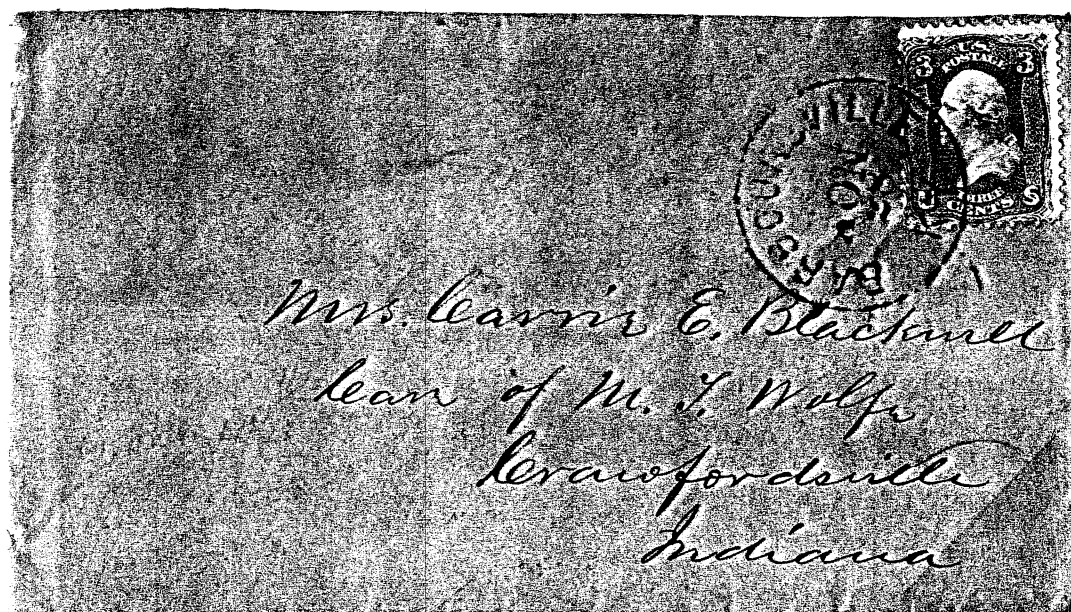 3 U.S. POSTAGE 3
U THREE CENTS S
NOV
Mrs. Carrie E. Blackwell
Care of M. T. Wolfe
Crawfordsville
Indiana